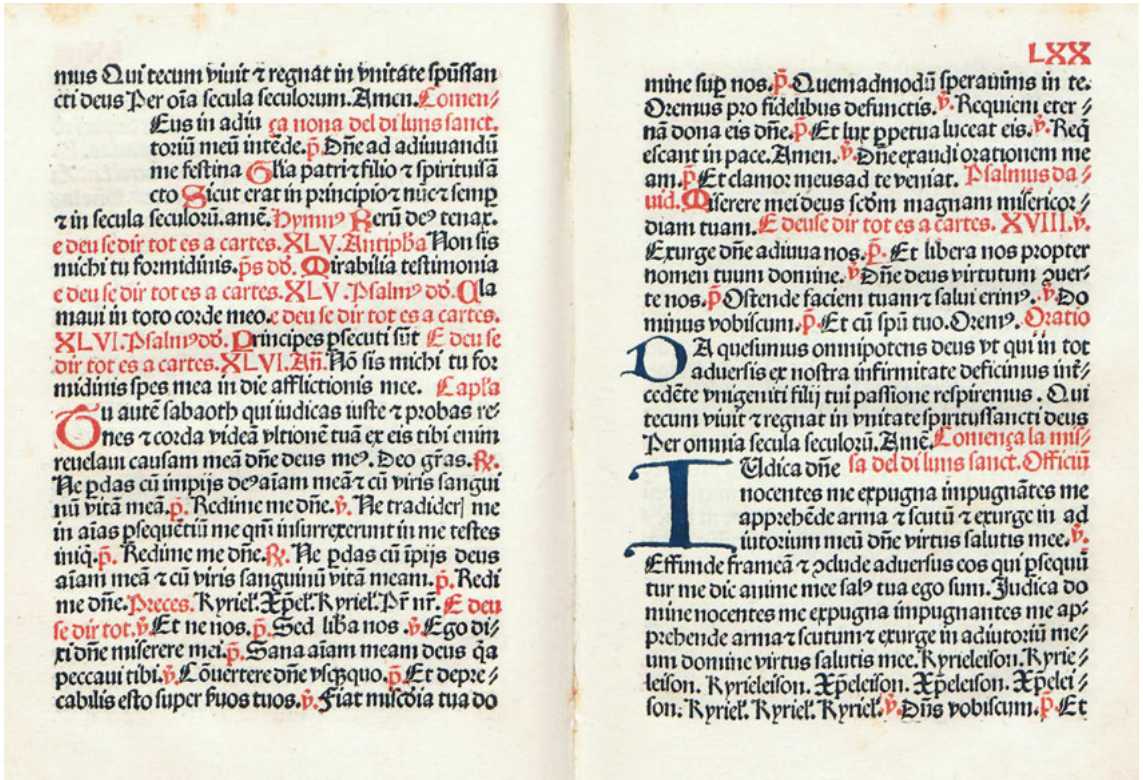 mus Qui tecum viuit ⁊ regnat in vnitate spūssan
cti deus Per oīa secula seculorum. Amen. Comen⸗
Eus in adiu ça nona del diluns sanct.
toriū meū intēde. p̄. Dn̄e ad adiuuandū
me festina Glīa patri ⁊ filio ⁊ spirituisā
cto Sicut erat in principio ⁊ nūc ⁊ semꝑ
⁊ in secula seculorū. amē. Hymnꝰ Rerū deꝰ tenax.
e deu se dir tot es a cartes. XLV. Antipha Non sis
michi tu formidinis. ps dd. Mirabilia testimonia
e deu se dir tot es a cartes. XLV. Psalmꝰ dd. Cla
maui in toto corde meo. e deu se dir tot es a cartes.
XLVI. Psalmꝰ dd. Principes ꝑsecuti sūt E deu se
dir tot es a cartes. XLVI. Añ. Nō sis michi tu for
midinis spes mea in die afflictionis mee. Capl̄a
Tu autē sabaoth qui iudicas iuste ⁊ probas re⸗
nes ⁊ corda videā vltionē tuā ex eis tibi enim
reuelaui causam meā dn̄e deus meꝰ. Deo gr̄as. ℟.
Ne ꝑdas cū impijs deꝰ aīam meā ⁊ cū viris sangui
nū vitā meā. p̄. Redime me dn̄e. ℣. Ne tradiderꝭ me
in aīas ꝑsequētiū me qm̄ insurrexerunt in me testes
iniq̄. p̄. Redime me dn̄e. ℟. Ne ꝑdas cū īpijs deus
aīam meā ⁊ cū viris sanguinū vitā meam. p̄. Redi
me dn̄e. Preces. Kyriel. Xp̄el. Kyriel. Pr̄ nr̄. E deu
se dir tot. ℣. Et ne nos. p̄. Sed liba nos. ℣. Ego di⸗
xi dn̄e miserere mei. p̄. Sana aīam meam deus q̄a
peccaui tibi. ℣. Cōuertere dn̄e vsqꝫquo. p̄. Et depre⸗
cabilis esto super ẜuos tuos. ℣. Fiat mīscdīa tua do
LXX
mine suꝑ nos. p̄. Quemadmodū sperauimꝰ in te.
Oremus pro fidelibus defunctis. ℣. Requiem eter⸗
nā dona eis dn̄e. p̄. Et lux ꝑpetua luceat eis. ℣. Req
escant in pace. Amen. ℣. Dn̄e exaudi orationem me
am. p̄. Et clamor meus ad te veniat. Psalmus da⸗
uid. Miserere mei deus scd̄m magnam misericor⸗
diam tuam. E deuse dir tot es a cartes. XVIII. ℣.
Exurge dn̄e adiuua nos. p̄. Et libera nos propter
nomen tuum domine. ℣. Dn̄e deus virtutum ꝯuer⸗
te nos. p̄. Ostende faciem tuam ⁊ salui erimꝰ. ℣. Do
minus vobiscum. p̄. Et cū spū tuo. Oremꝰ. Oratio
DA quesumus omnipotens deus vt qui in tot
aduersis ex nostra infirmitate deficimus int̄⸗
cedēte vnigeniti filij tui passione respiremus. Qui
tecum viuit ⁊ regnat in vnitate spiritussancti deus
Per omnia secula seculorū. Amē. Començа la mis⸗
IUdica dn̄e sa del diluns sanct. Officiū
nocentes me expugna impugnātes me
apprehēde arma ⁊ scutū ⁊ exurge in ad
iutorium meū dn̄e virtus salutis mee. ℣.
Effunde frameā ⁊ ꝯclude aduersus eos qui ꝑsequū
tur me dic anime mee salꝰ tua ego sum. Judica do
mine nocentes me expugna impugnantes me ap⸗
prehende arma ⁊ scutum ⁊ exurge in adiutoriū me⸗
um domine virtus salutis mee. Kyrieleison. Kyrie⸗
leison. Kyrieleison. Xp̄eleison. Xp̄eleison. Xp̄elei⸗
son. Kyriel. Kyriel. Kyriel. ℣. Dn̄s vobiscum. p̄. Et